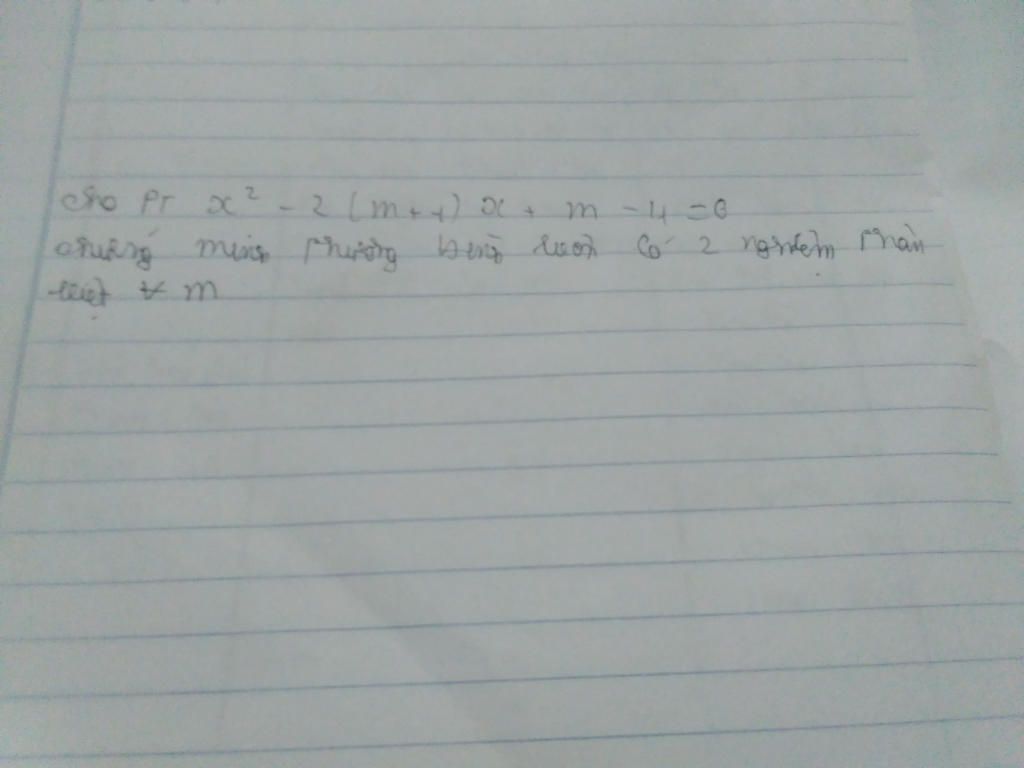 cho PT x² - 2 (m + 1) x + m - 4 = 0
chứng minh phương trình luôn có 2 nghiệm phân
biệt ∀ m